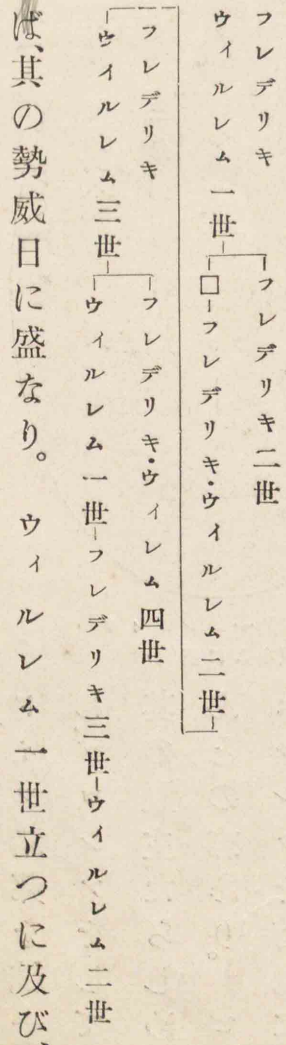 フレデリキ
ウィルレム一世
フレデリキ二世
□フレデリキ・ウイルレム二世
フレデリキ
ウイルレム三世
フレデリキ・ウィレム四世
ウィルレム一世
フレデリキ三世
ウイルレム二世
ば、其の勢威日に盛なり。ウィルレム一世立つに及び、